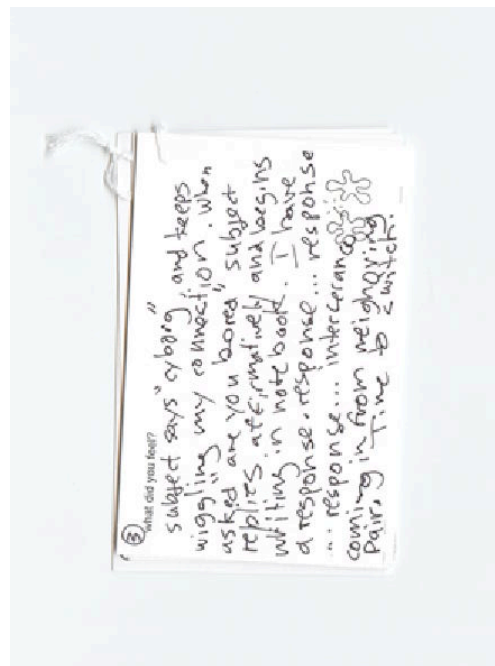 ③
what did you feel?
subject says "ybping" and keeps
wiggling my connection. when
asked "are you bored" subject
replies affirmatively and begins
writing in notebook. I have
a response. response... response
... response... intercerance...
coming in from neighoring
pairing. Time to switch.